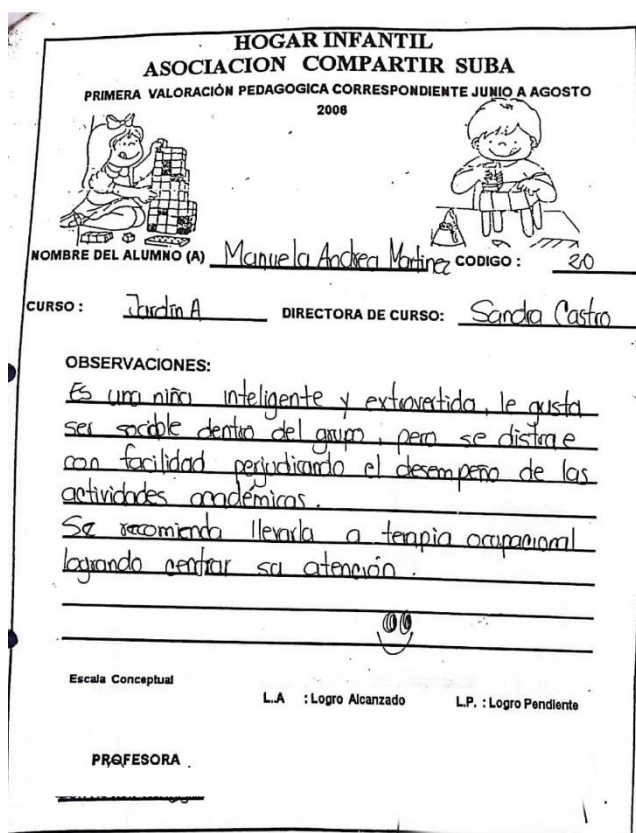 HOGAR INFANTIL
ASOCIACION COMPARTIR SUBA
PRIMERA VALORACIÓN PEDAGOGICA CORRESPONDIENTE JUNIO A AGOSTO
2006
NOMBRE DEL ALUMNO (A) Manuela Andrea Martinez CODIGO : 20
CURSO : Jardín A DIRECTORA DE CURSO: Sandra Castro
OBSERVACIONES:
Es una niña inteligente y extrovertida, le gusta
ser socible dentro del grupo, pero se distrae
con facilidad perjudicando el desempeño de las
actividades académicas.
Se recomienda llevarla a terapia ocupacional
logrando centrar su atención.
Escala Conceptual
L..A : Logro Alcanzado L.P. : Logro Pendiente
PROFESORA